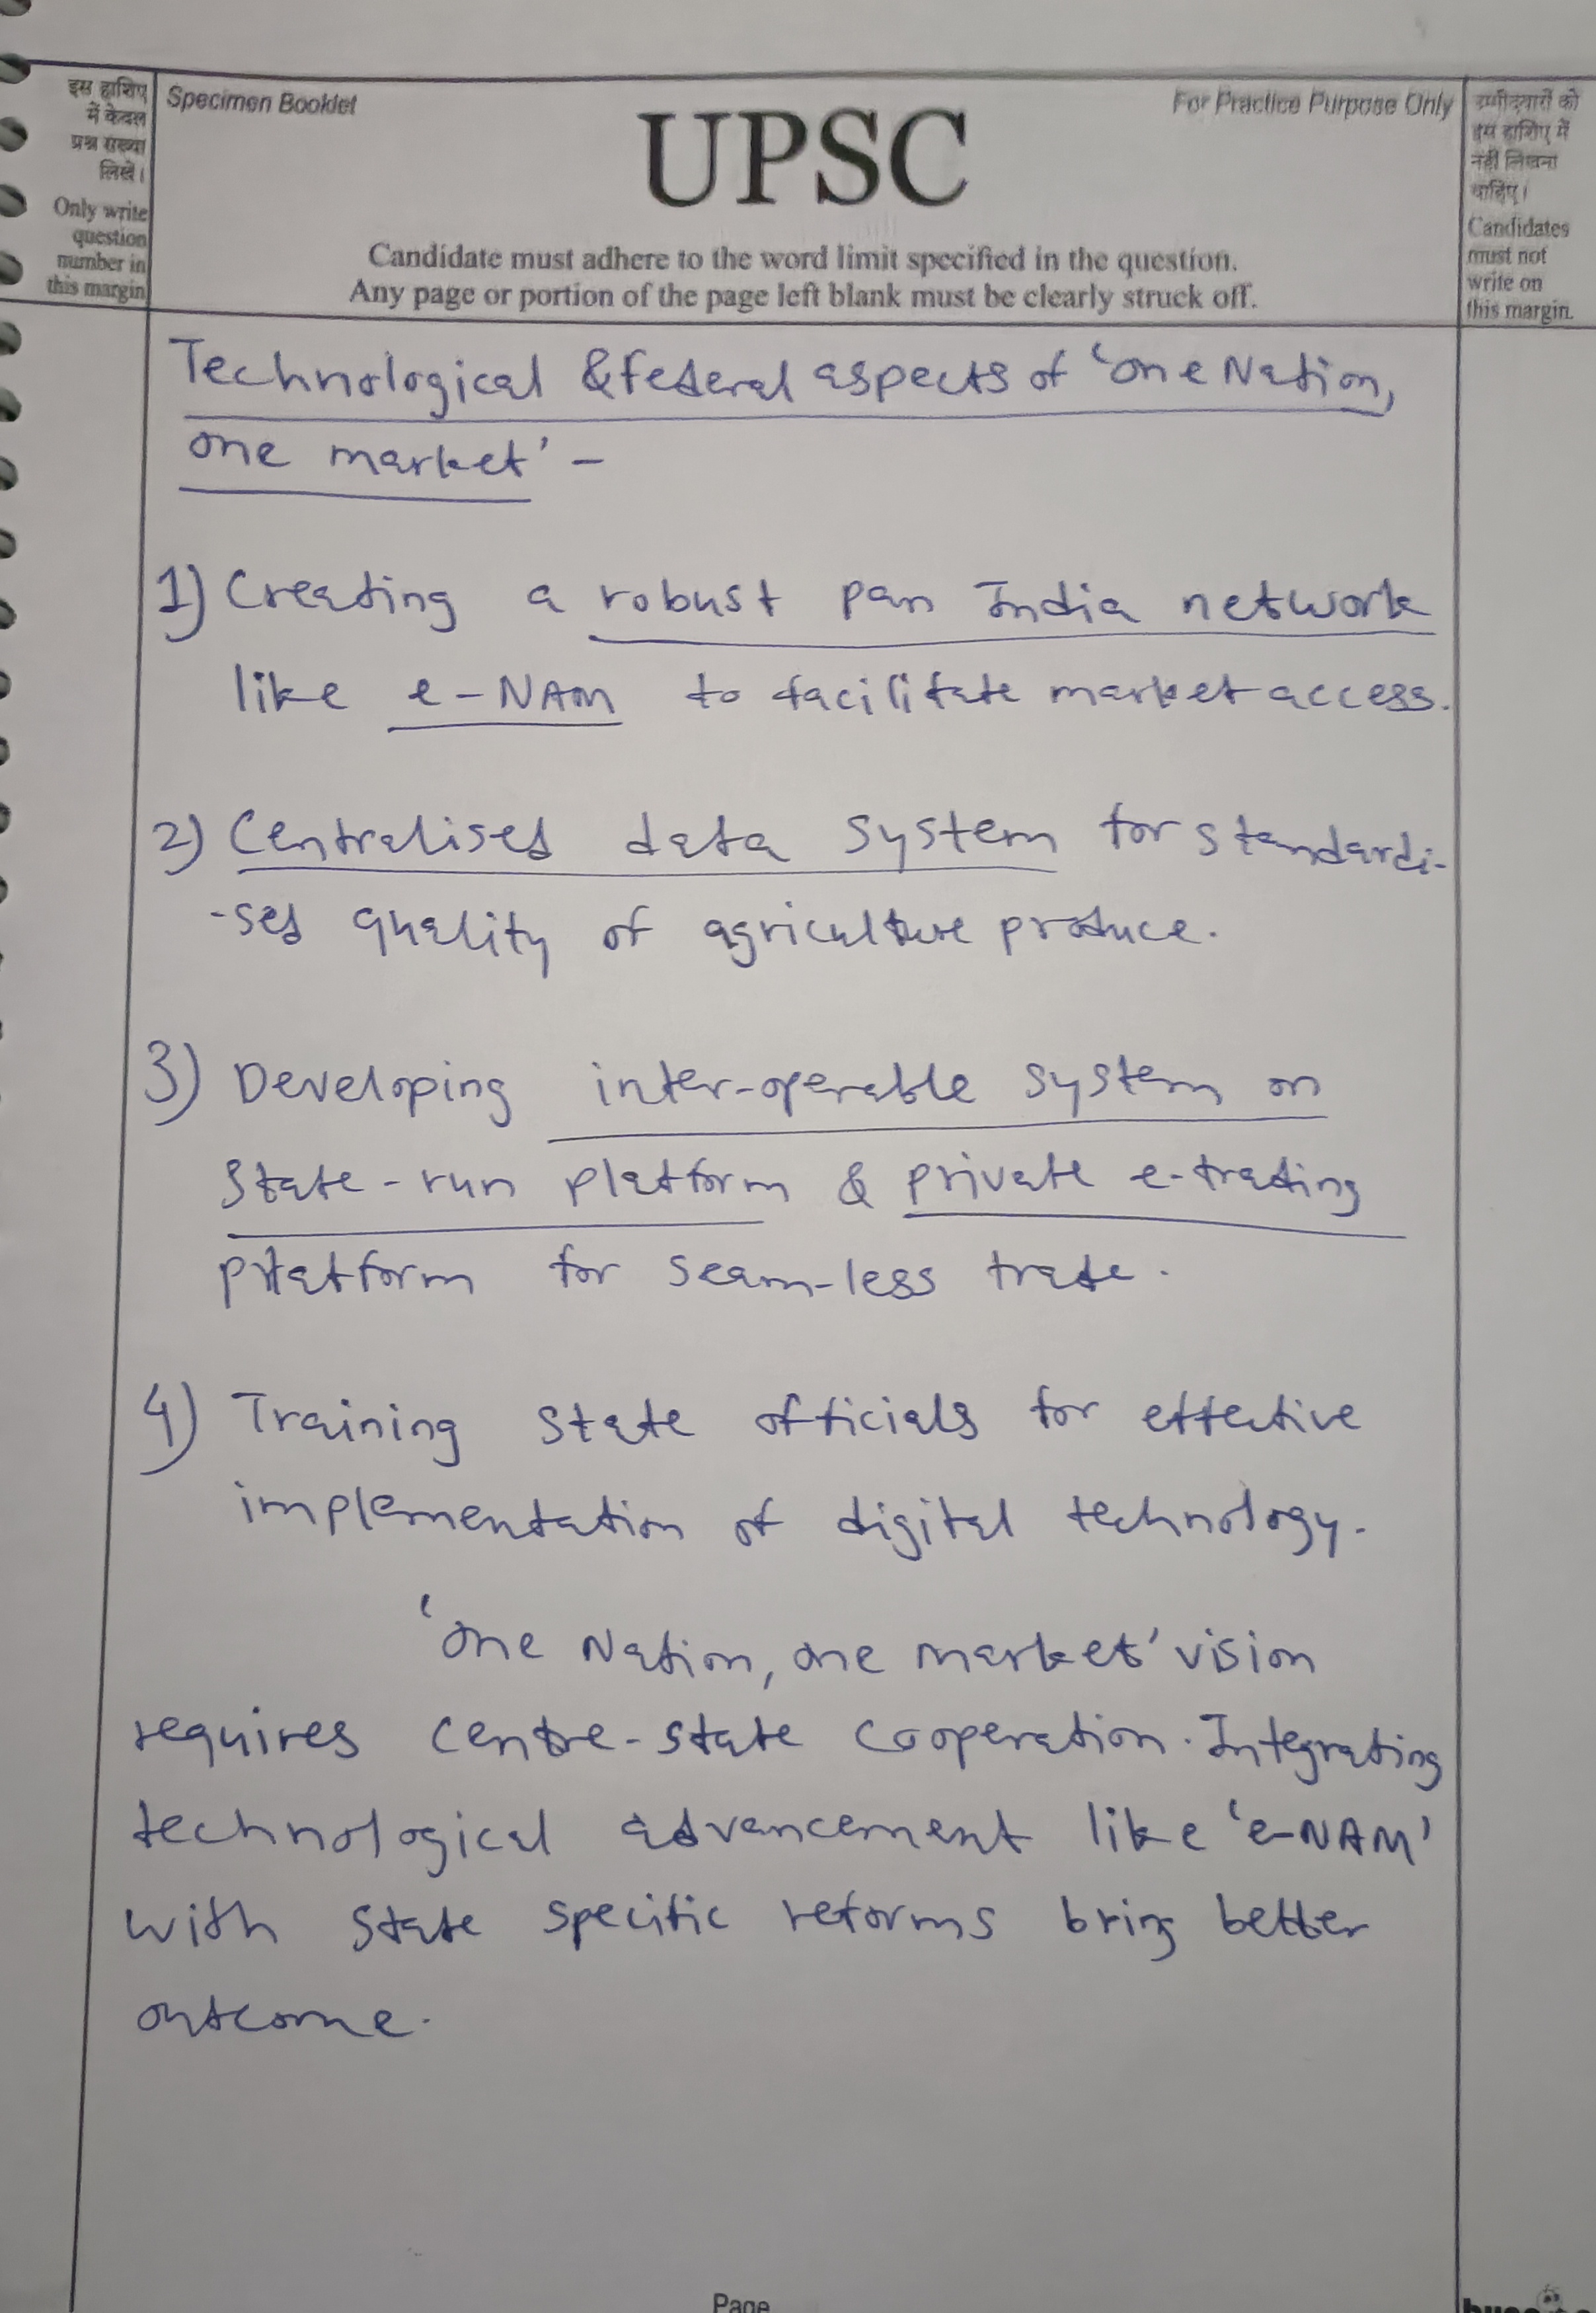 इस हाशिए
में केवल
प्रश्न संख्या
लिखें।
Only write
question
number in
this margin
Specimen Booklet
For Practice Purpose Only
UPSC
Candidate must adhere to the word limit specified in the question.
Any page or portion of the page left blank must be clearly struck off.
उम्मीदवारों को
इस हाशिए में
नहीं लिखना
चाहिए।
Candidates
must not
write on
this margin.
Technological & federal aspects of 'one Nation,
one market' -
1) Creating a robust pan India network
like e-NAM to facilitate market access.
2) Centralised data system for standardi-
-sed quality of agriculture produce.
3) Developing inter-operable system on
state-run platform & private e-trading
platform for seam-less trade.
4) Training state officials for effective
implementation of digital technology.
'one Nation, one market' vision
requires centre-state cooperation. Integrating
technological advancement like 'e-NAM'
with state specific reforms bring better
outcome.
Page